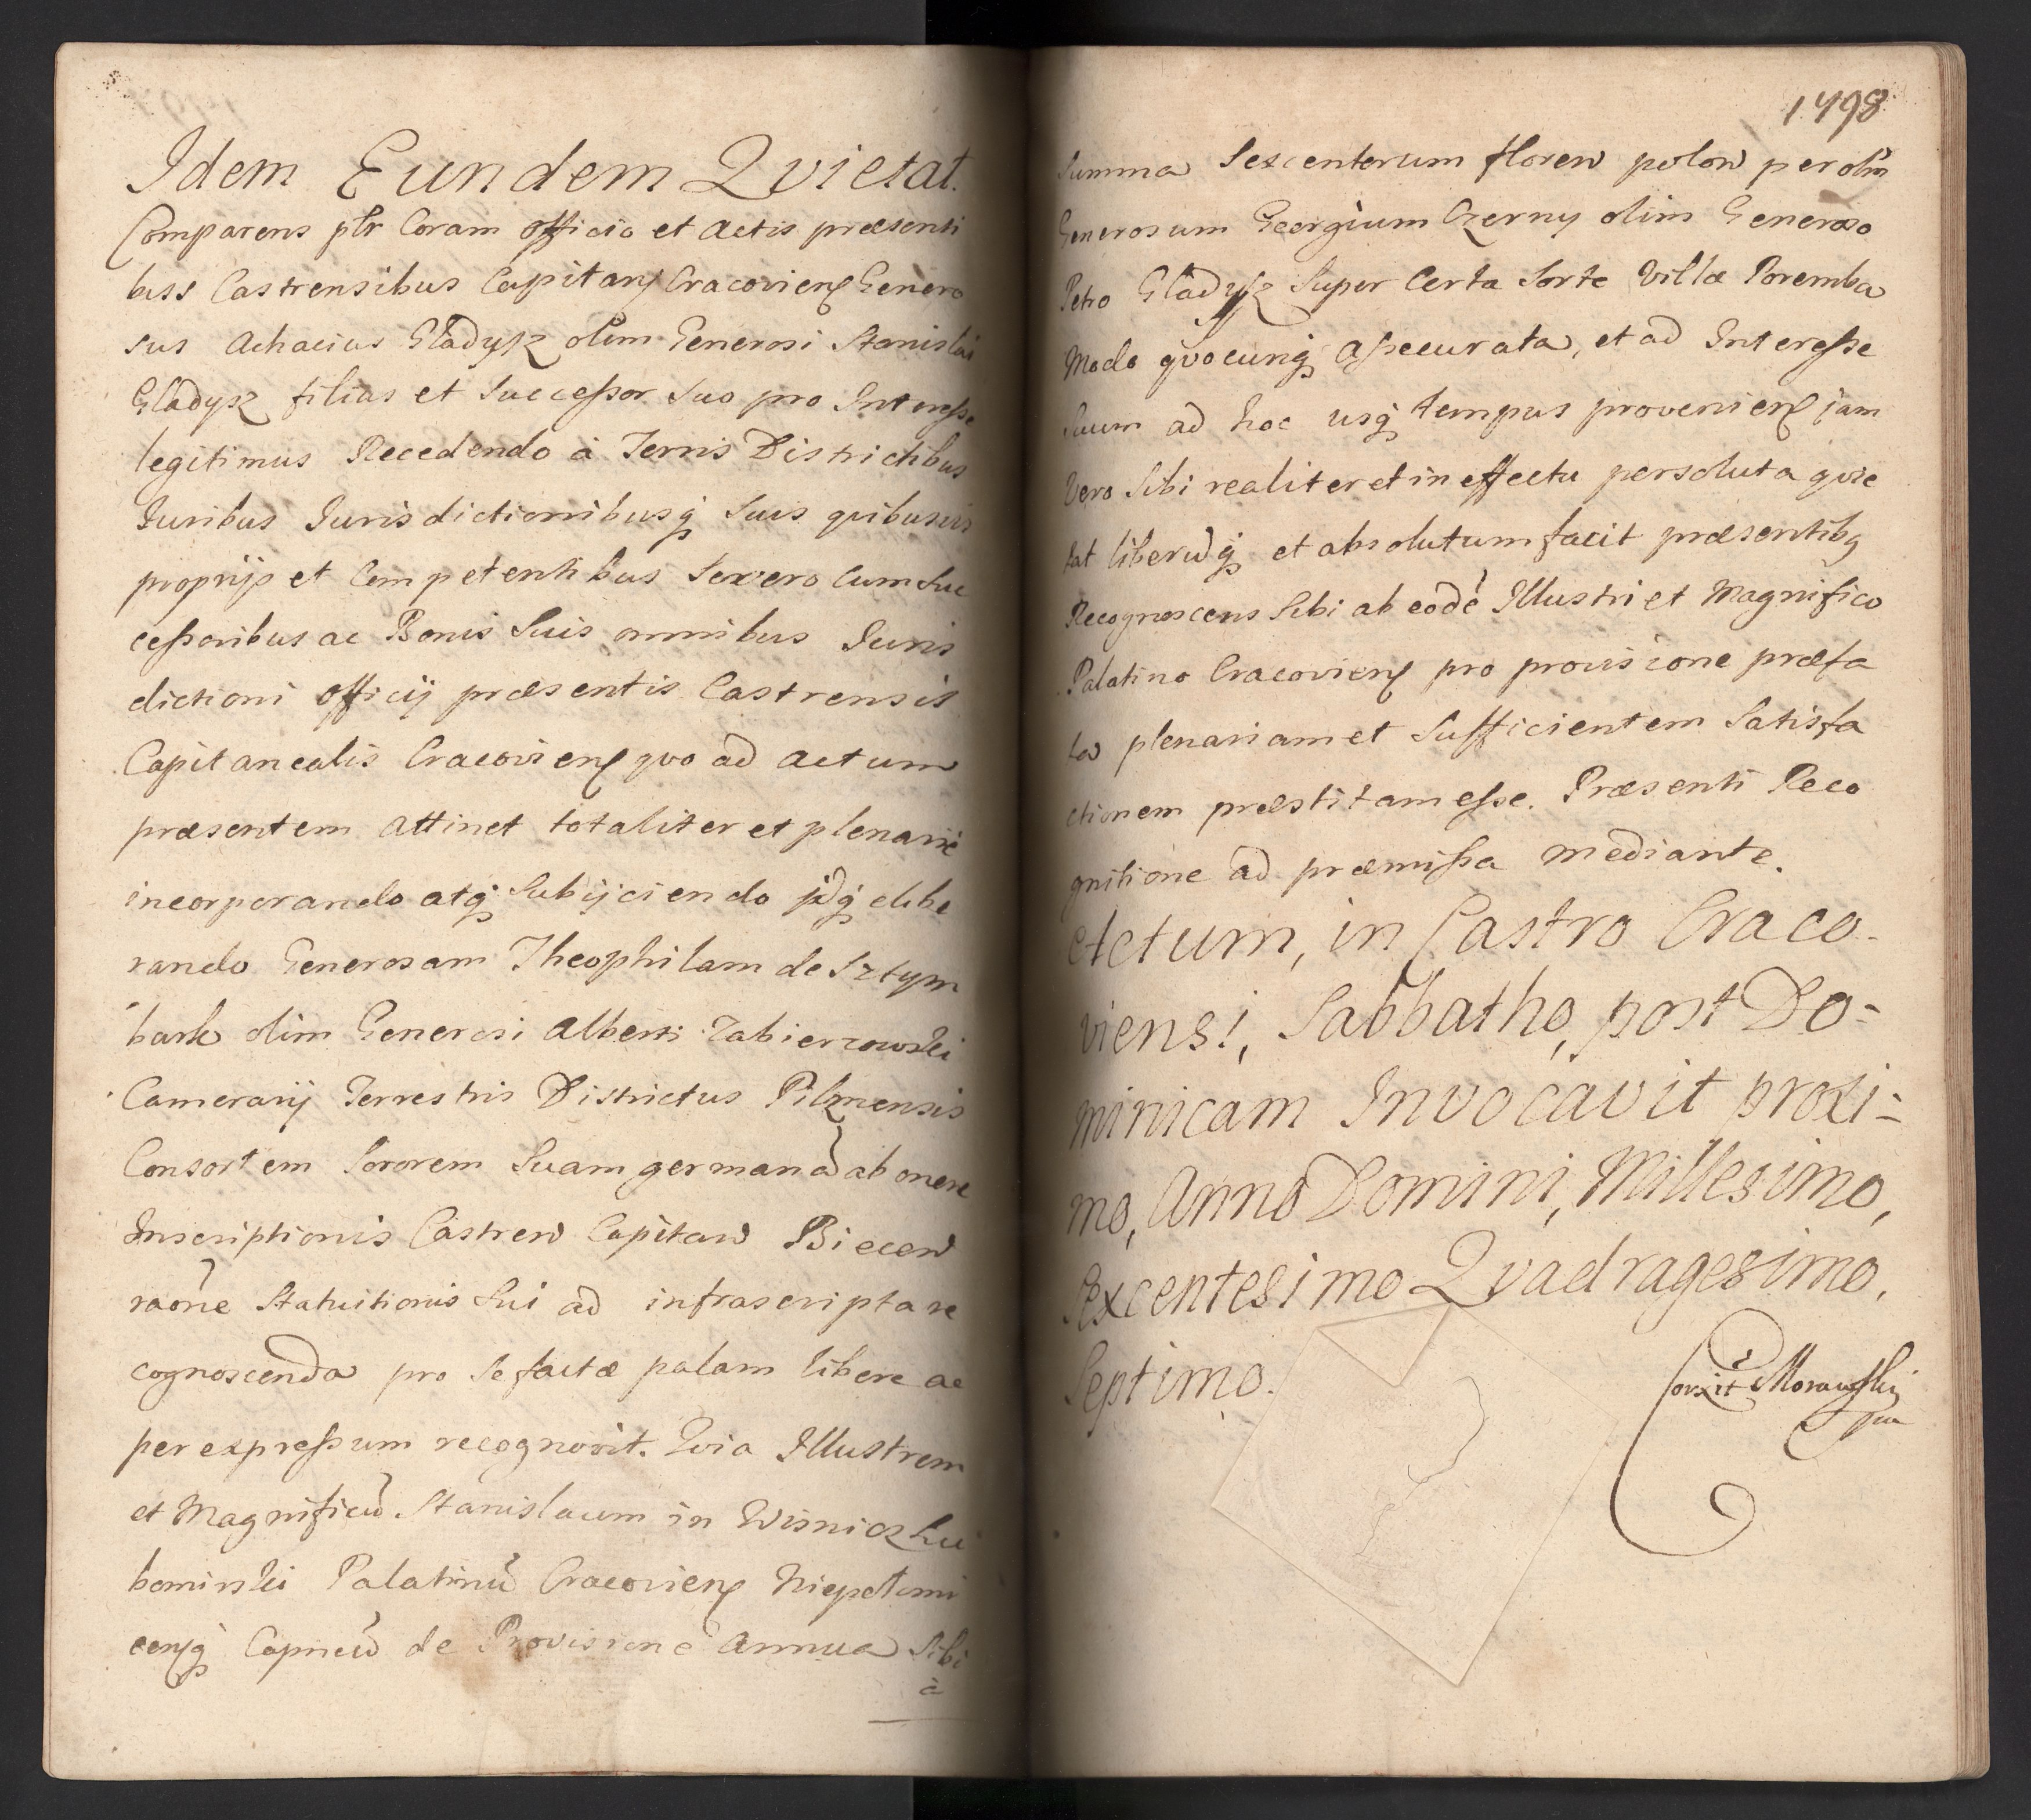 Idem Eundem Quietat.
Comparens plr Coram officio et actis præsenti
bus Castrensibus Capitanȩ Cracovienȩ Genero
sus Achacius Gładysz olim Generosi Stanislai
Gładysz filius et Successor Suo pro Interesse
legitimus Recedendo à Terris Districtibus
Juribus Jurisdictionibusq̃ Suis quibusvis
proprijs et Competentibus Se vero Cum Suc
cessoribus ac Bonis Suis omnibus Juris
dictioni officij præsentis Castrensis
Capitanealis Cracovienȩ quo ad actum
præsentem attinet totaliter et plenarie
incorporando atq̃ Subijciendo idq̃ delibe
rando Generosam Theophilam de Sztym
bark olim Generosi Alberti Zabierzowski
Camerarij Terrestris Districtus Pilznensis
Consortem Sororem Suam germanã ab onere
Inscriptionis Castren̄ Capitan̄ Biecen̄
raõne Statuitionis Sui ad infrascripta re
cognoscenda pro Se factæ palam libere ac
per expressum recognovit. Quia Illustrem
et Magnificũ Stanislaum in Wisnicz Lu
bomirski Palatinũ Cracovienȩ Niepołomi
censq̃ Capneũ de Provisione Annua Sibi
à
1498
Summa Sescentorum floren̄ polon̄ per olim
Generosum Georgium Czerny olim Generoso
Petro Gładysz Super Certa Sorte Villæ Poremba
Modo quocunq̃ assecurata, et ad Interesse
Suum ad hoc usq̃ tempus provenienȩ jam
Vero Sibi realiter et in effectu persoluta quie
tat liberũq̃ et absolutum facit præsentibq
Recognoscens Sibi ab eodẽ Illustri et Magnifico
Palatino Cracovienȩ pro provisione præfa
ta plenariam et Sufficientem Satisfa
ctionem præstitam esse. Præsenti Reco
gnitione ad præmissa mediante.
Actum, in Castro Craco-
viensi, Sabbatho, post Do-
minicam Invocavit proxi-
mo, Anno Domini, Millesimo,
Sexcentesimo Quadragesimo,
Septimo.
Corxit Morawski